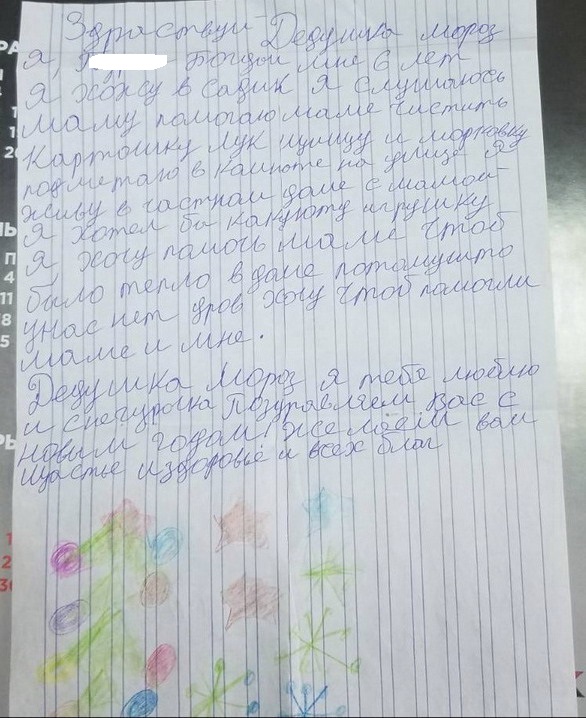 Здраствуй Дедушка мороз
Я, Богдан мне 6 лет
Я хожу в садик я слушаюсь
маму помогаю маме чистить
Картошку лук пщицу и морковку
подметаю в комноте на улице Я
живу в частном доме с мамой
Я хотел бы какуюто игрушку
Я, хочу помочь маме Чтоб
было тепло в доме потомушто
унас нет дров хочу Чтоб помогли
маме и мне.
Дедушка Мороз я тебя люблю
и снегурочка Поздравляем Вас с
новым годом! желаем вам
щастье издоровье и всех благ